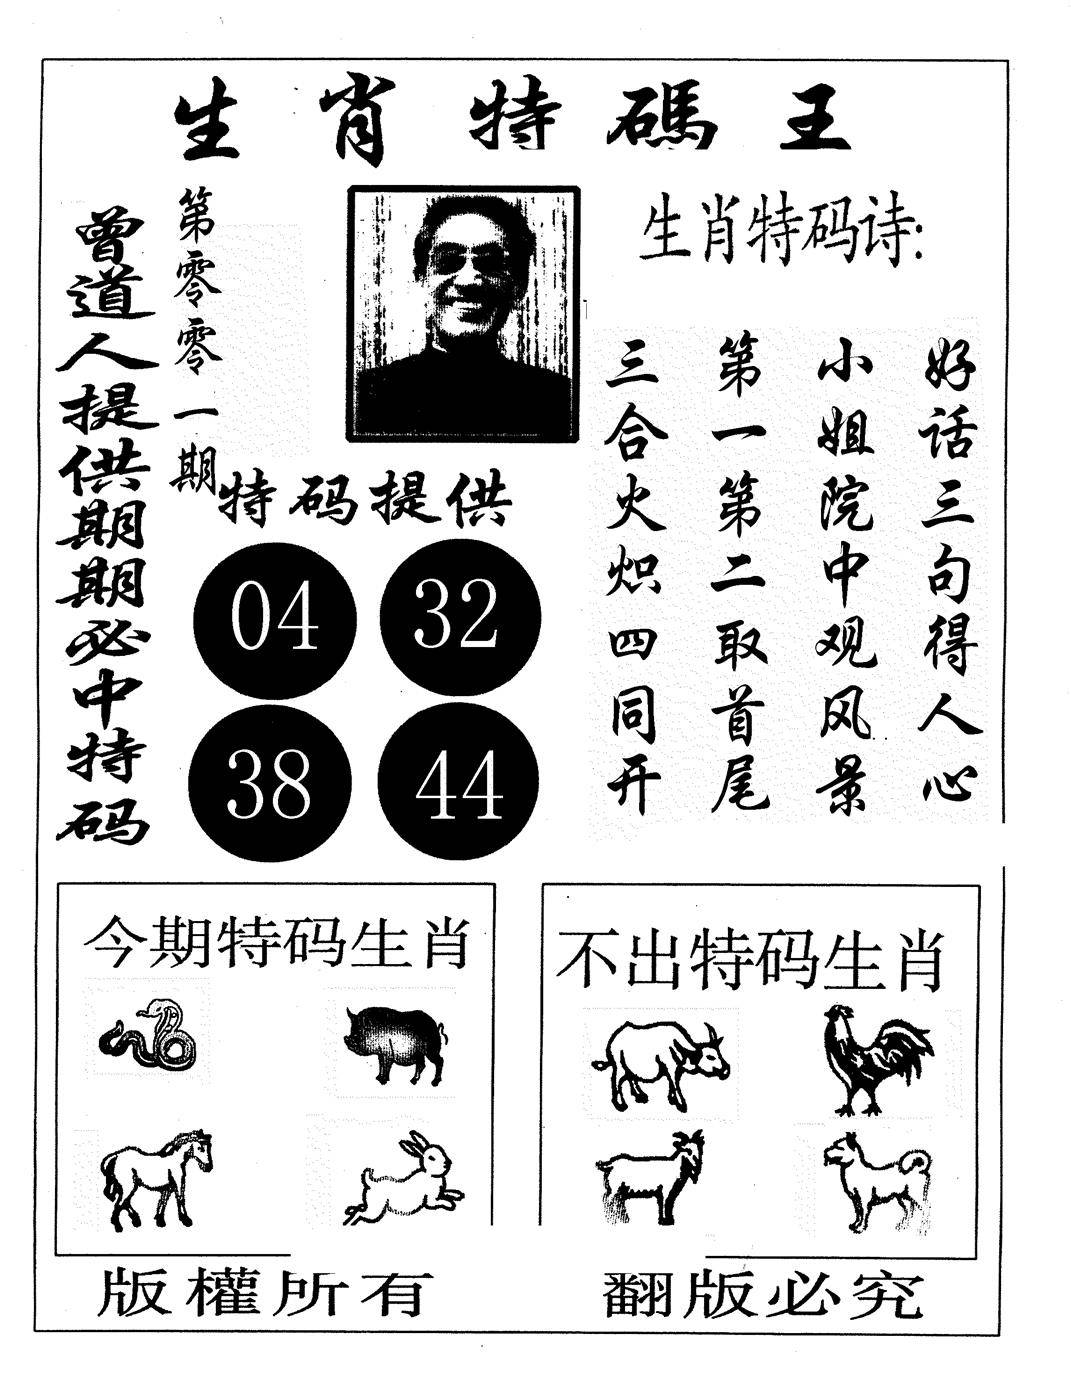 生肖特碼王
曾道人提供期期必中特码
第零零一期
生肖特码诗:
好话三句得人心
小姐院中观风景
第一第二取首尾
三合火炽四同开
特码提供
04
32
38
44
今期特码生肖
不出特码生肖
版權所有
翻版必究